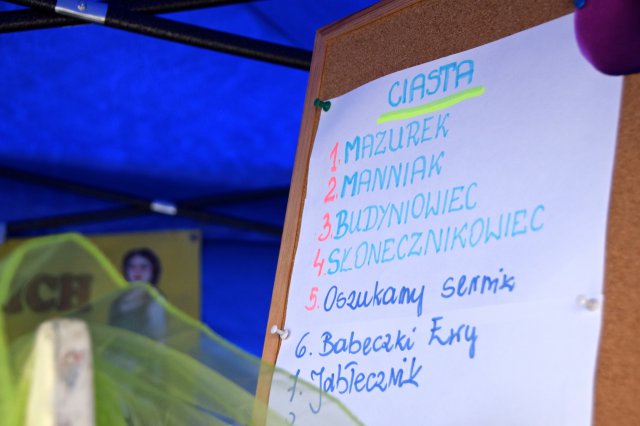 CIASTA
1. MAZUREK
2. MANNIAK
3. BUDYNIOWIEC
4. SŁONECZNIKOWIEC
5. Oszukany sernik
6. Babeczki Ewy
7. Jabłecznik